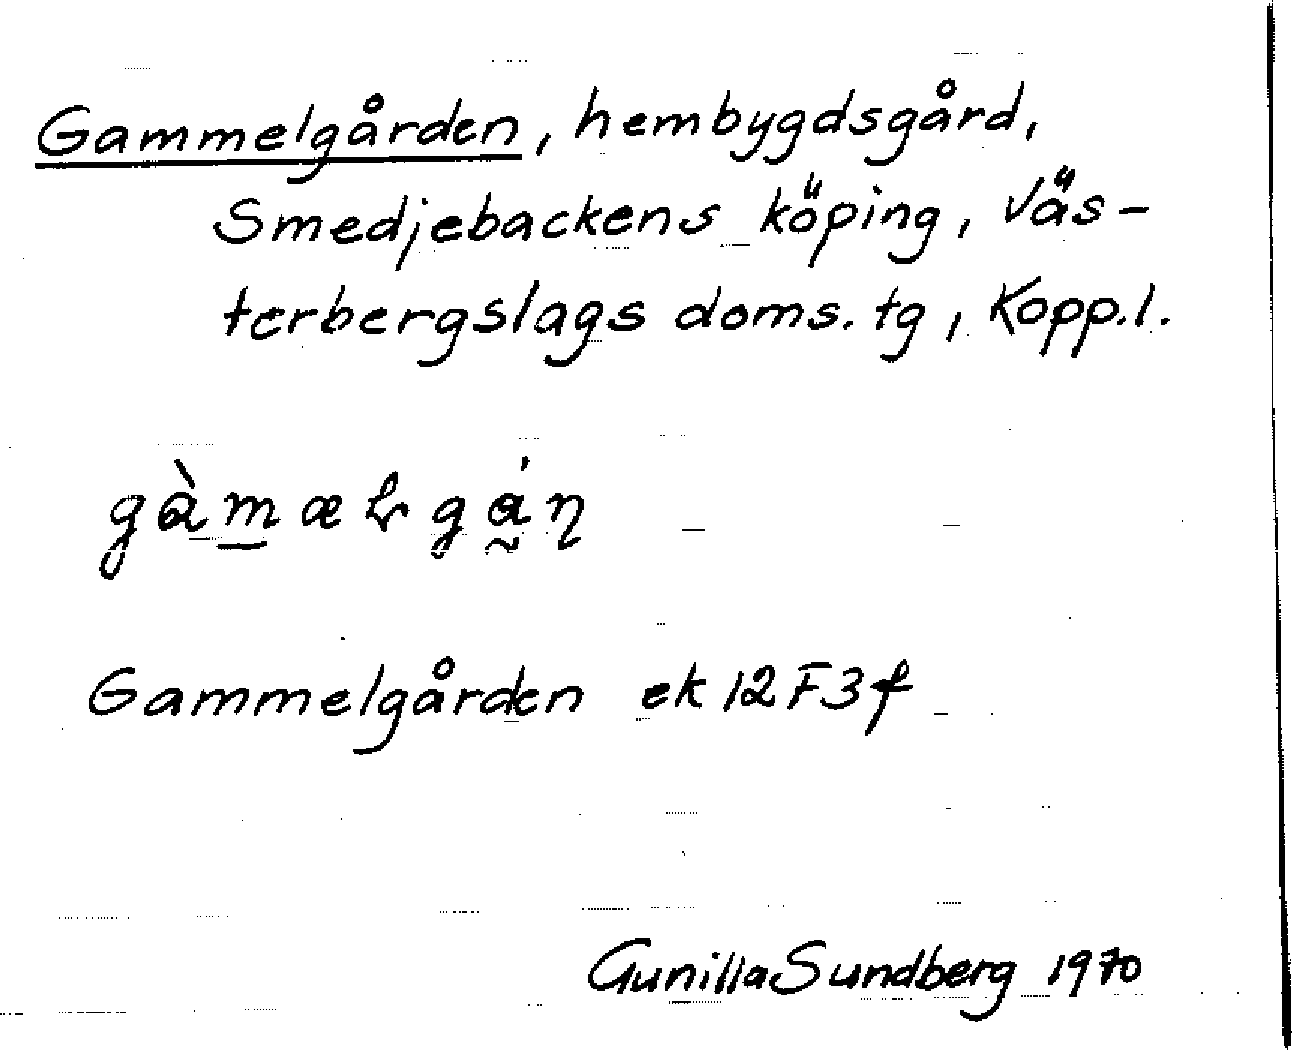 Gammelgården, hembygdsgård,
Smedjebackens köping, Väs-
terbergslags doms. tg, Kopp.l.
Gammelgården ek 12F3f
Gunilla Sundberg 1970